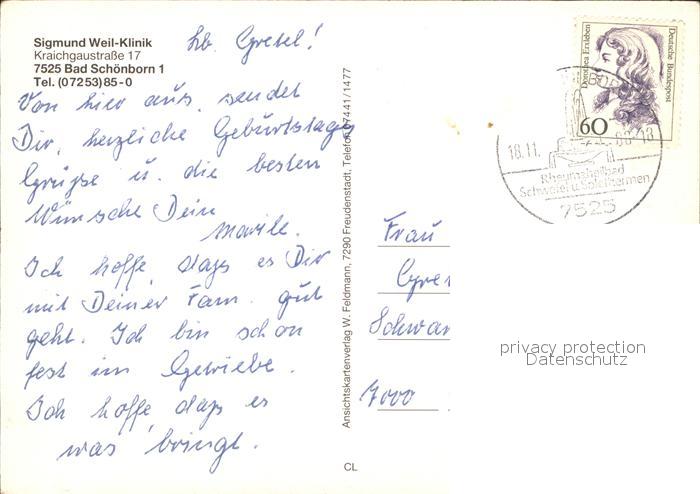 Sigmund Weil-Klinik
Kraichgaustraße 17
7525 Bad Schönborn 1
Tel. (07253) 85-0
Lb. Gretel!
Von hier aus sendet
Dir, herzliche Geburtstags
Grüße u. die besten
Wünsche Dein
Ich hoffe, dass es Dir
mit Deiner Fam. gut
geht. Ich bin schon
fest im Getriebe.
Ich hoffe, dass es
was bringt.
Ansichtskartenverlag W. Feldmann, 7290 Freudenstadt, Telefon 07441/1477
CL
Dorothea Erxleben
Deutsche Bundespost
60
18.11.
88-18
Rheumaheilbad
Schwefel u. Solethermen
7525
Frau
Gre
Schwar
7000
privacy protection
Datenschutz